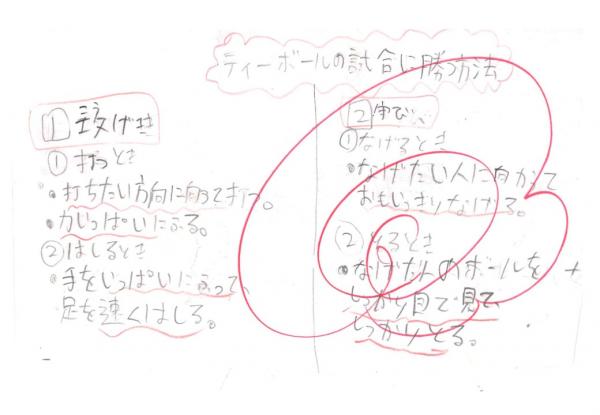 ティーボールの試合に勝つ方法
1 攻げき
①打つとき
・打ちたい方向に向って打つ。
・力いっぱいにふる。
②はしるとき
・手をいっぱいにふって、
足を速くはしる。
2 守び
①なげるとき
・なげたい人に向かって
おもいっきりなげる。
②とるとき
・なげた人のボールを
しっかり目で見て、
しっかりとる。